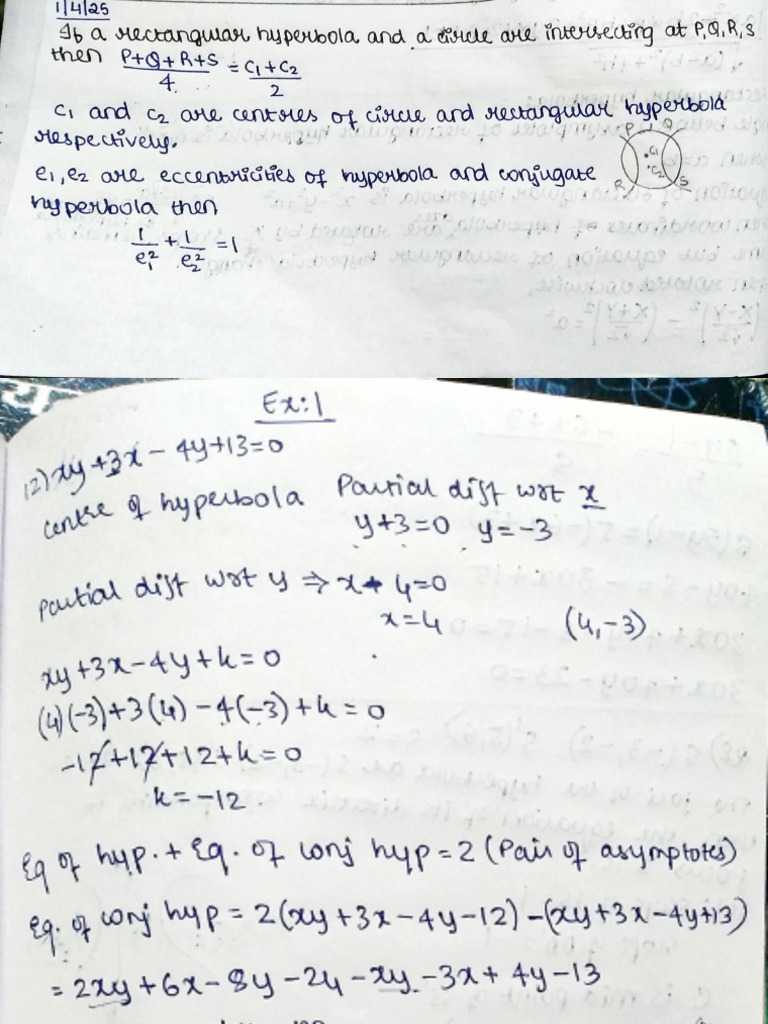 1/4/25
If a rectangular hyperbola and a circle are intersecting at P,Q,R,S
then (P+Q+R+S)/4 = (C₁+C₂)/2
C₁ and C₂ are centres of circle and rectangular hyperbola
respectively.
P Q
C₁
C₂
R S
e₁,e₂ are eccentricities of hyperbola and conjugate
hyperbola then
1/e₁² + 1/e₂² = 1
Ex:1
12) xy+3x-4y+13=0
centre of hyperbola Partial diff wrt x
y+3=0 y=-3
Partial diff wrt y ⇒ x-4=0
x=4 (4,-3)
xy+3x-4y+k=0
(4)(-3)+3(4)-4(-3)+k=0
-12+12+12+k=0
k=-12
Eq of hyp. + Eq. of conj hyp = 2 (Pair of asymptotes)
Eq. of conj hyp = 2(xy+3x-4y-12)-(xy+3x-4y+13)
= 2xy+6x-8y-24-xy-3x+4y-13